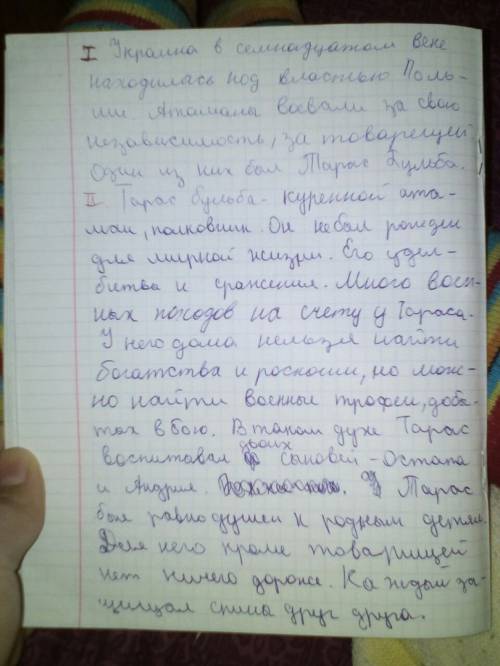 I Украина в семнадцатом веке
находилась под властью Поль-
ши Атаманы воевали за свою
независимость, за товарещей
Один из них был Тарас Бульба.
II Тарас Бульба - куренной ата-
ман, полковник. Он небыл рожден
для мирной жизни. Его удел -
битва и сражения. Много воен-
ных походов на счету у Тараса.
У него дома нельзя найти
богатства и роскоши, но мож-
но найти военные трофеи, добы-
тых в бою. В таком духе Тарас
воспитовал двоих сыновей - Остапа
и Андрия. Тарас
был равнодушен к родным детям.
Для него кроме товарищей
нет ничего дороже. Каждый за-
щищал спины друг друга.